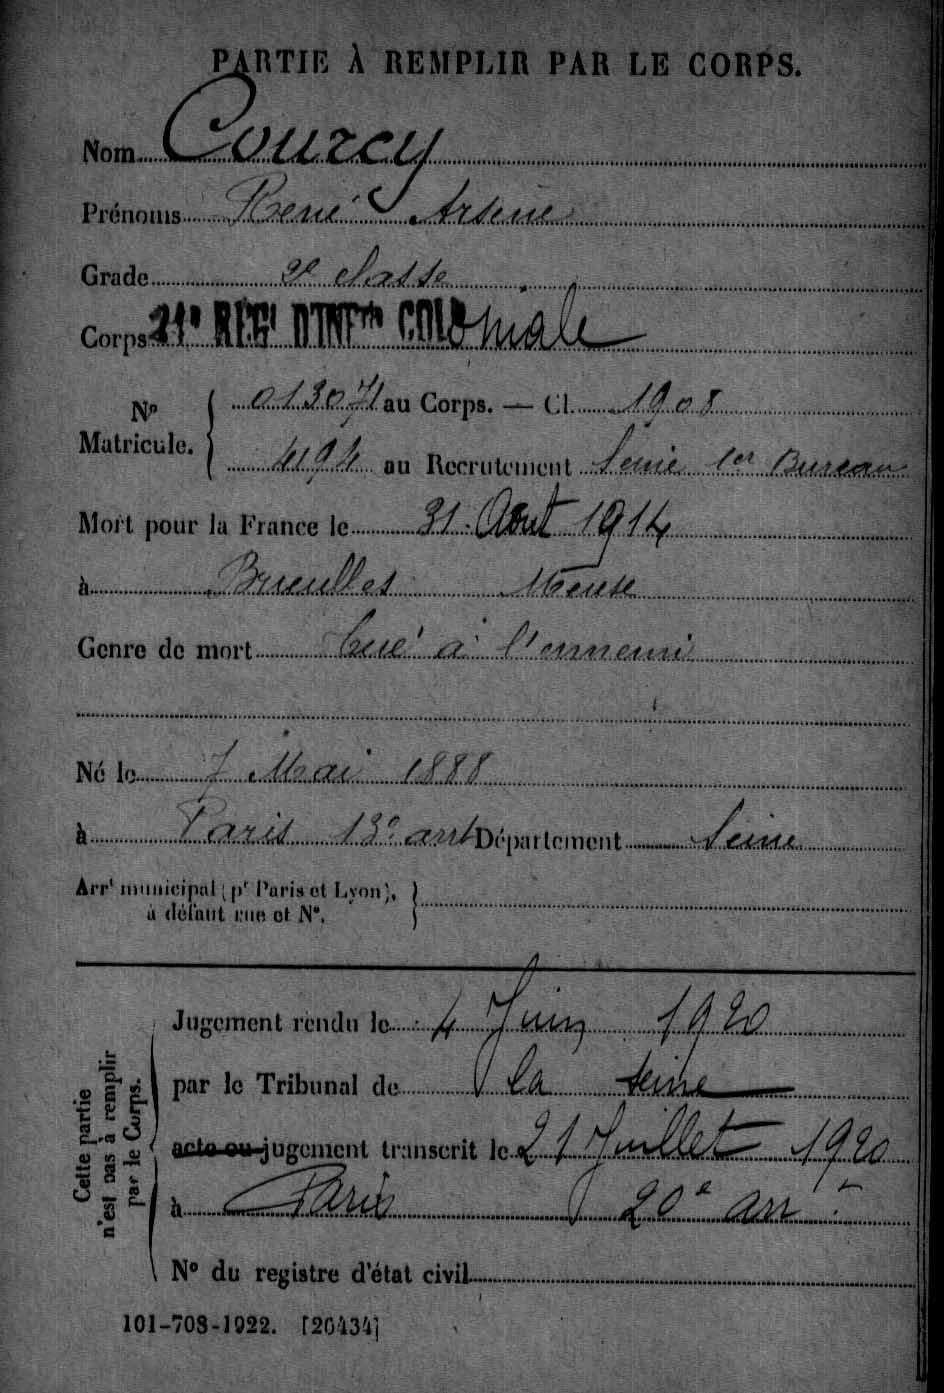 PARTIE À REMPLIR PAR LE CORPS.
Nom Courcy
Prénoms René Arsène
Grade 2e classe
Corps 21e REGt D'INFrie COLoniale
No Matricule. 01307 au Corps. — Cl. 1908
4194 au Recrutement Seine 1er Bureau
Mort pour la France le 31 Août 1914
à Brieulles Meuse
Genre de mort tué à l'ennemi
Né le 7 Mai 1888
à Paris 13e arrt Département Seine
Arrt municipal (pr Paris et Lyon),
à défaut rue et No.
Cette partie
n'est pas à remplir
par le Corps.
Jugement rendu le 4 Juin 1920
par le Tribunal de la Seine
acte ou jugement transcrit le 21 Juillet 1920
à Paris 20e arr
No du registre d'état civil
101-708-1922. [26434]